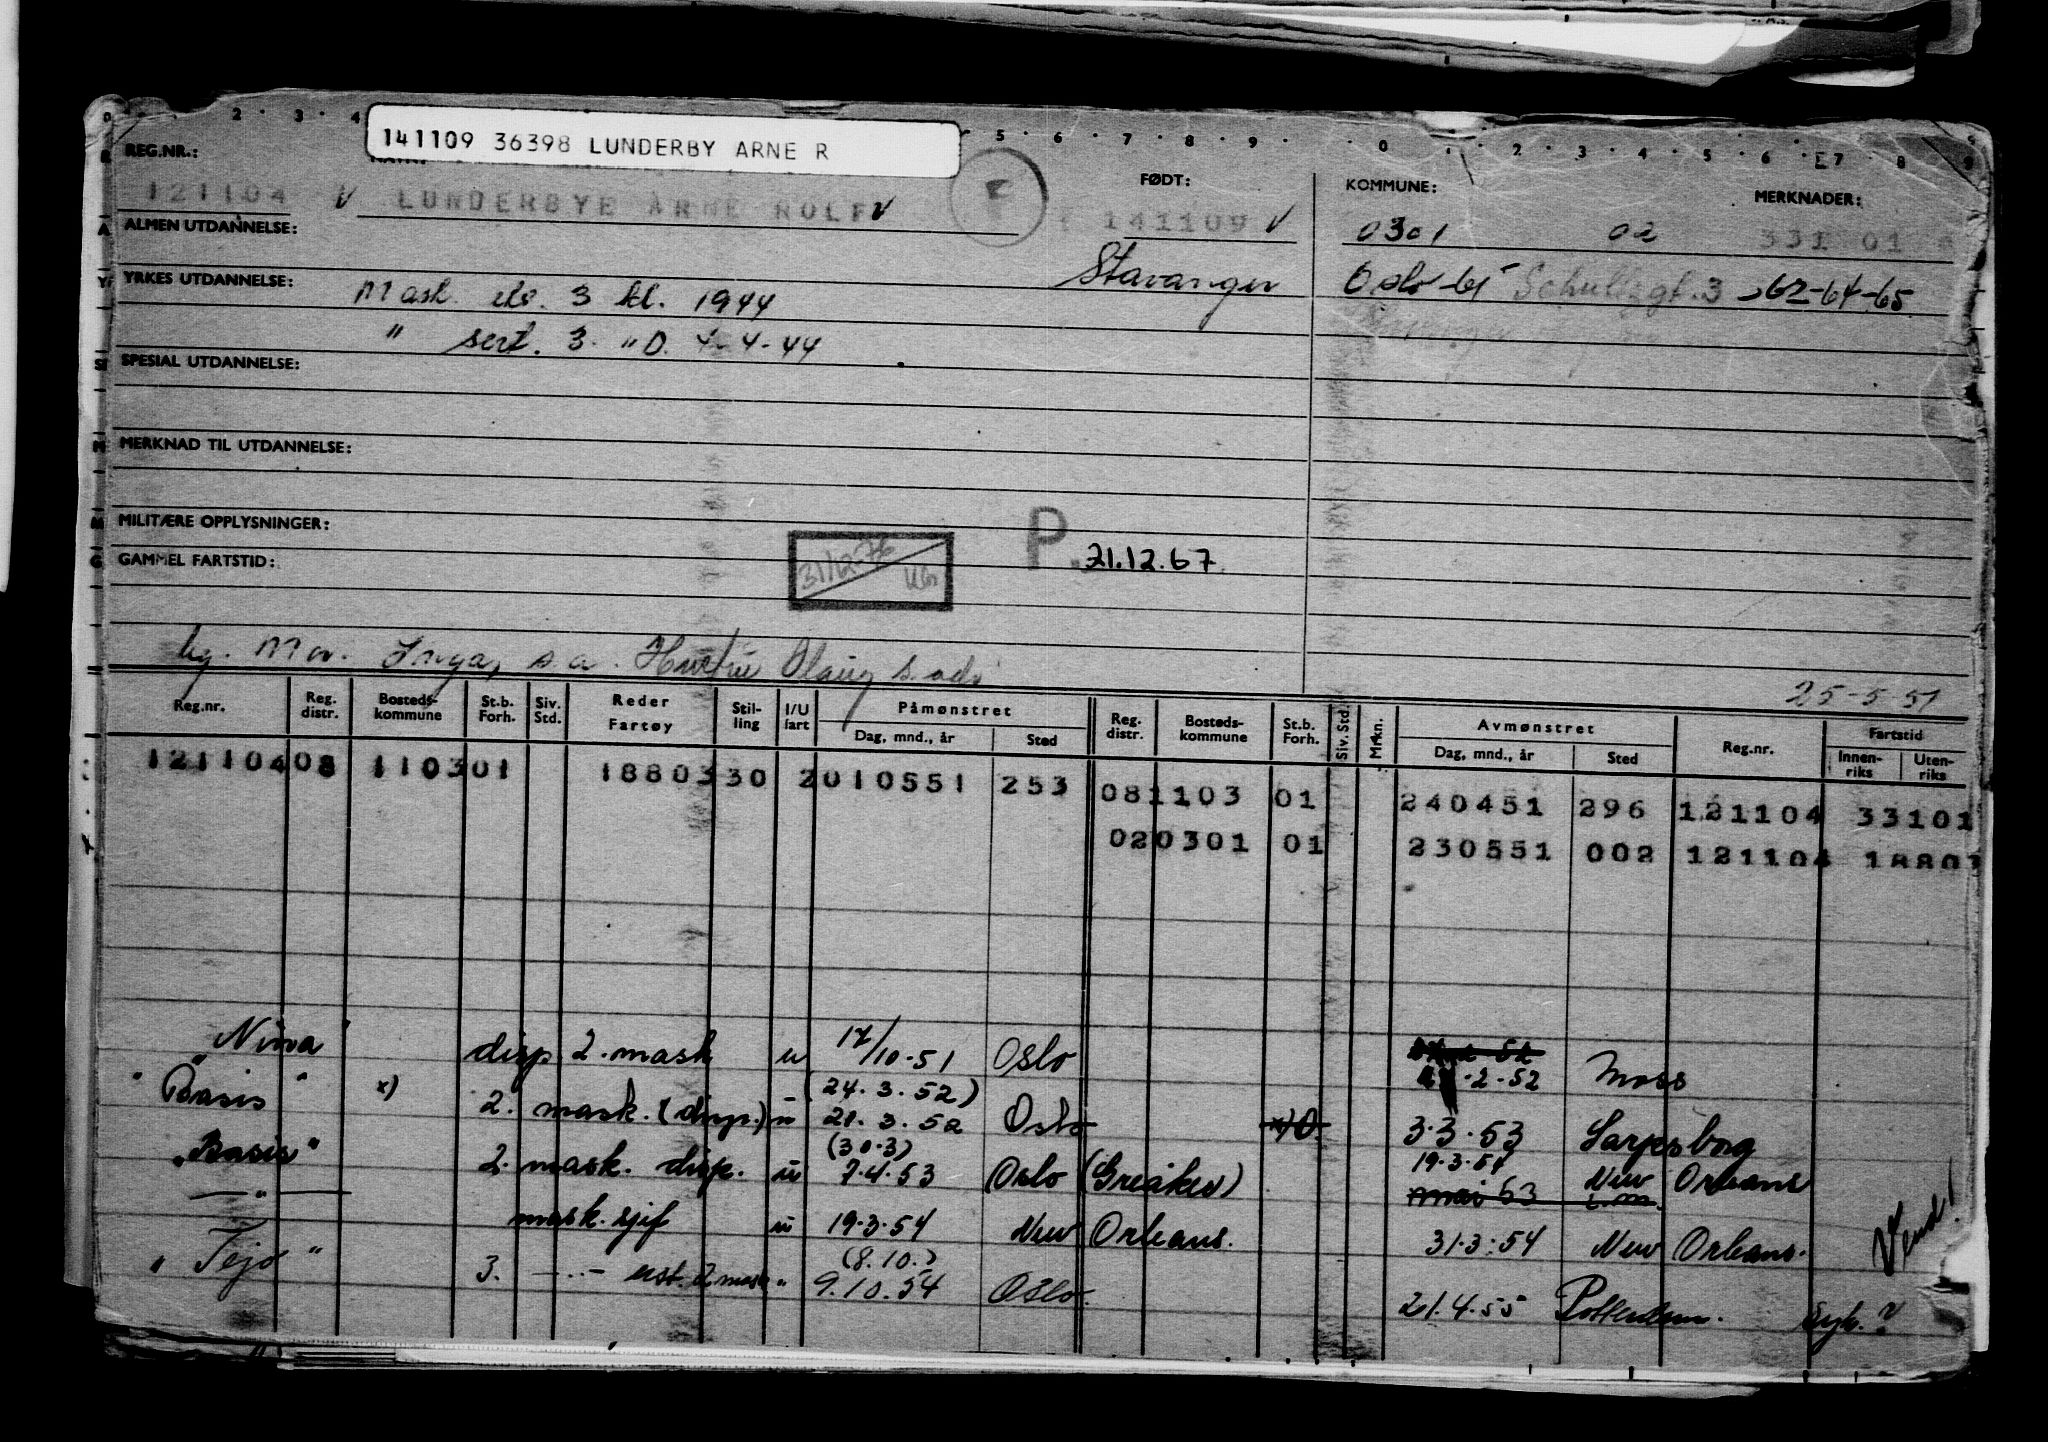 141109 36398 LUNDERBY ARNE R
REG.NR.: FØDT: KOMMUNE: MERKNADER:
121104 V LUNDERBYE ARNE ROLF V F 141109 V 0301 02 331 01
ALMEN UTDANNELSE:
Stavanger Oslo-61 Schultzgt. 3 62-64-65
YRKES UTDANNELSE: Mask. 3 kl. 1944
" sert. 3. "D. 4-4-44
SPESIAL UTDANNELSE:
MERKNAD TIL UTDANNELSE:
MILITÆRE OPPLYSNINGER:
P. 21.12.67
GAMMEL FARTSTID: 31/12-76
Mor. Inga, s.a. Hustru Olaug s.adr
25-5-51
Reg.nr. Reg. distr. Bosteds-kommune St.b. Forh. Siv. Std. Reder Fartøy Stil-ling I/U fart Påmønstret Reg. distr. Bosteds-kommune St.b. Forh. Siv. Std. Mrkn. Avmønstret Reg.nr. Fartstid
Dag, mnd., år Sted Dag, mnd., år Sted Innen-riks Uten-riks
121104 08 1103 01 1880 330 2 010551 253 08 1103 01 240451 296 121104 33101
02 0301 01 230551 002 121104 18803
"Nina" disp 2. mask u 17/10-51 Oslo 2-52 Moss
(24.3.52)
"Basis" x) 2. mask. (disp.) u 21.3.52 Oslo x) O. 3.3.53 Sarpsborg
(30.3) 19.3.54
"Basis" 2. mask. disp. u 7.4.53 Oslo (Greåker) mai 53 New Orleans
—"— mask. sjef u 19.3.54 New Orleans. 31.3.54 New Orleans. Vend!
(8.10.)
"Tejo" 3. —..— ast. 2 mask " 9.10.54 Oslo. 21.4.55 Rotterdam. Syk. ?